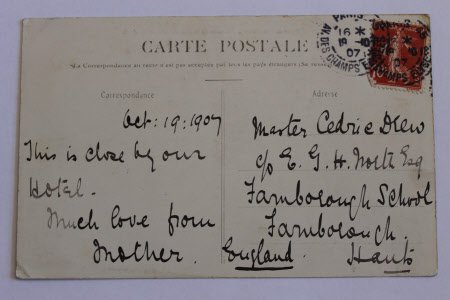 CARTE POSTALE
La Correspondance au recto n'est pas acceptée par tous les pays étrangers
Correspondance
Adresse
PARIS
AV. DES CHAMPS ELYSEES
07
Oct: 19: 1907
This is close by our
Hotel.
Much love from
Mother.
Master Cedric Drew
c/o E. G. H. North Esq
Farnborough School
Farnborough.
Hants
England.